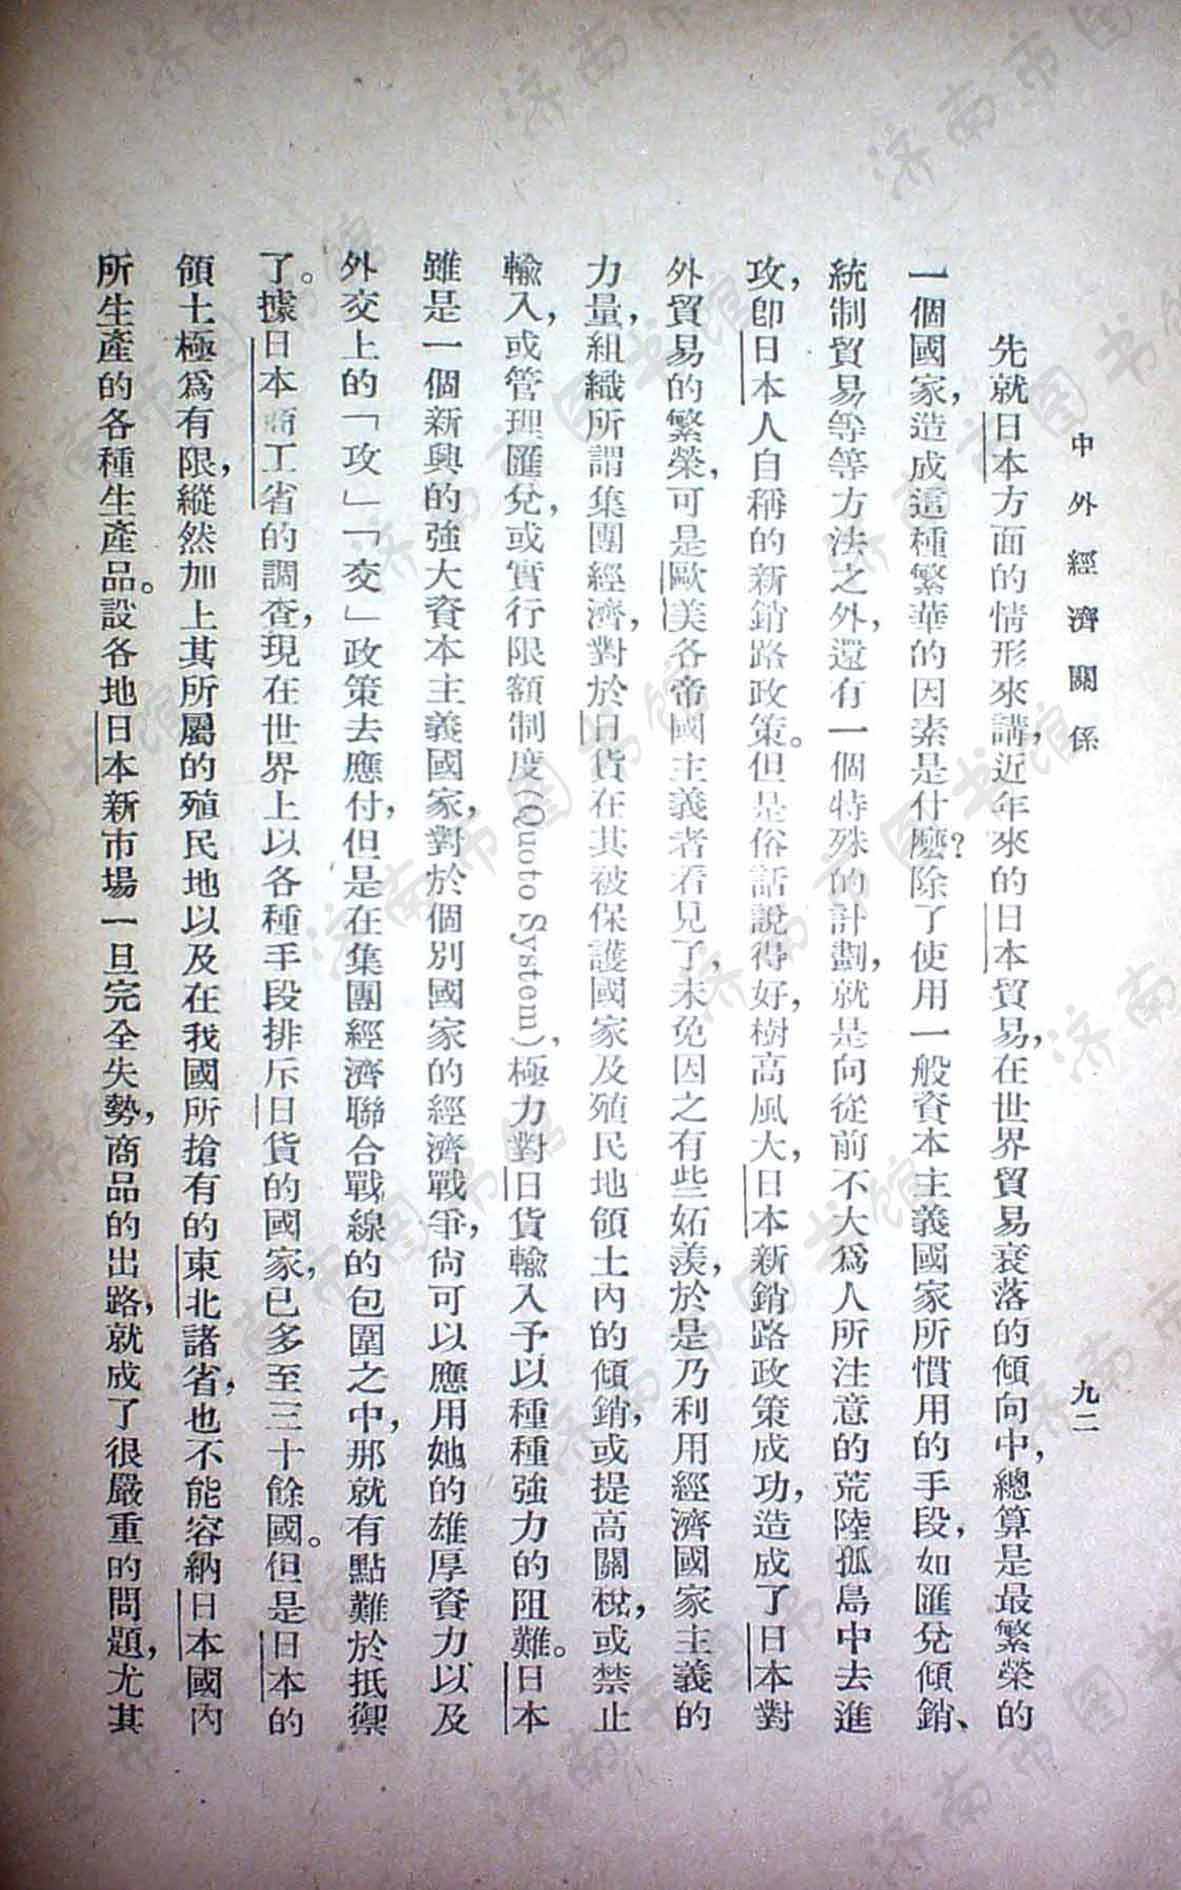 中外經濟關係
九二
先就日本方面的情形來講，近年來的日本貿易，在世界貿易衰落的傾向中，總算是最繁榮的
一個國家，造成這種繁華的因素是什麼？除了使用一般資本主義國家所慣用的手段，如匯兌傾銷、
統制貿易等等方法之外，還有一個特殊的計劃，就是向從前不大為人所注意的荒陸孤島中去進
攻，即日本人自稱的新銷路政策。但是俗話說得好，樹高風大，日本新銷路政策成功，造成了日本對
外貿易的繁榮，可是歐美各帝國主義者看見了，未免因之有些妬羨，於是乃利用經濟國家主義的
力量，組織所謂集團經濟，對於日貨在其被保護國家及殖民地領土內的傾銷，或提高關稅，或禁止
輸入，或管理匯兌，或實行限額制度（Quoto System），極力對日貨輸入予以種種強力的阻難。日本
雖是一個新興的強大資本主義國家，對於個別國家的經濟戰爭，尚可以應用她的雄厚資力以及
外交上的「攻」「交」政策去應付，但是在集團經濟聯合戰線的包圍之中，那就有點難於抵禦
了。據日本商工省的調查，現在世界上以各種手段排斥日貨的國家，已多至三十餘國。但是日本的
領土極為有限，縱然加上其所屬的殖民地以及在我國所搶有的東北諸省，也不能容納日本國內
所生產的各種生產品。設各地日本新市場一旦完全失勢，商品的出路，就成了很嚴重的問題，尤其
济南市图书馆